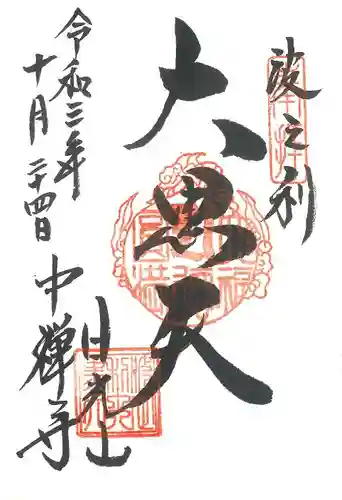 奉拝
波之利
大黒天
令和三年
十月二十四日
日光山
中禪寺